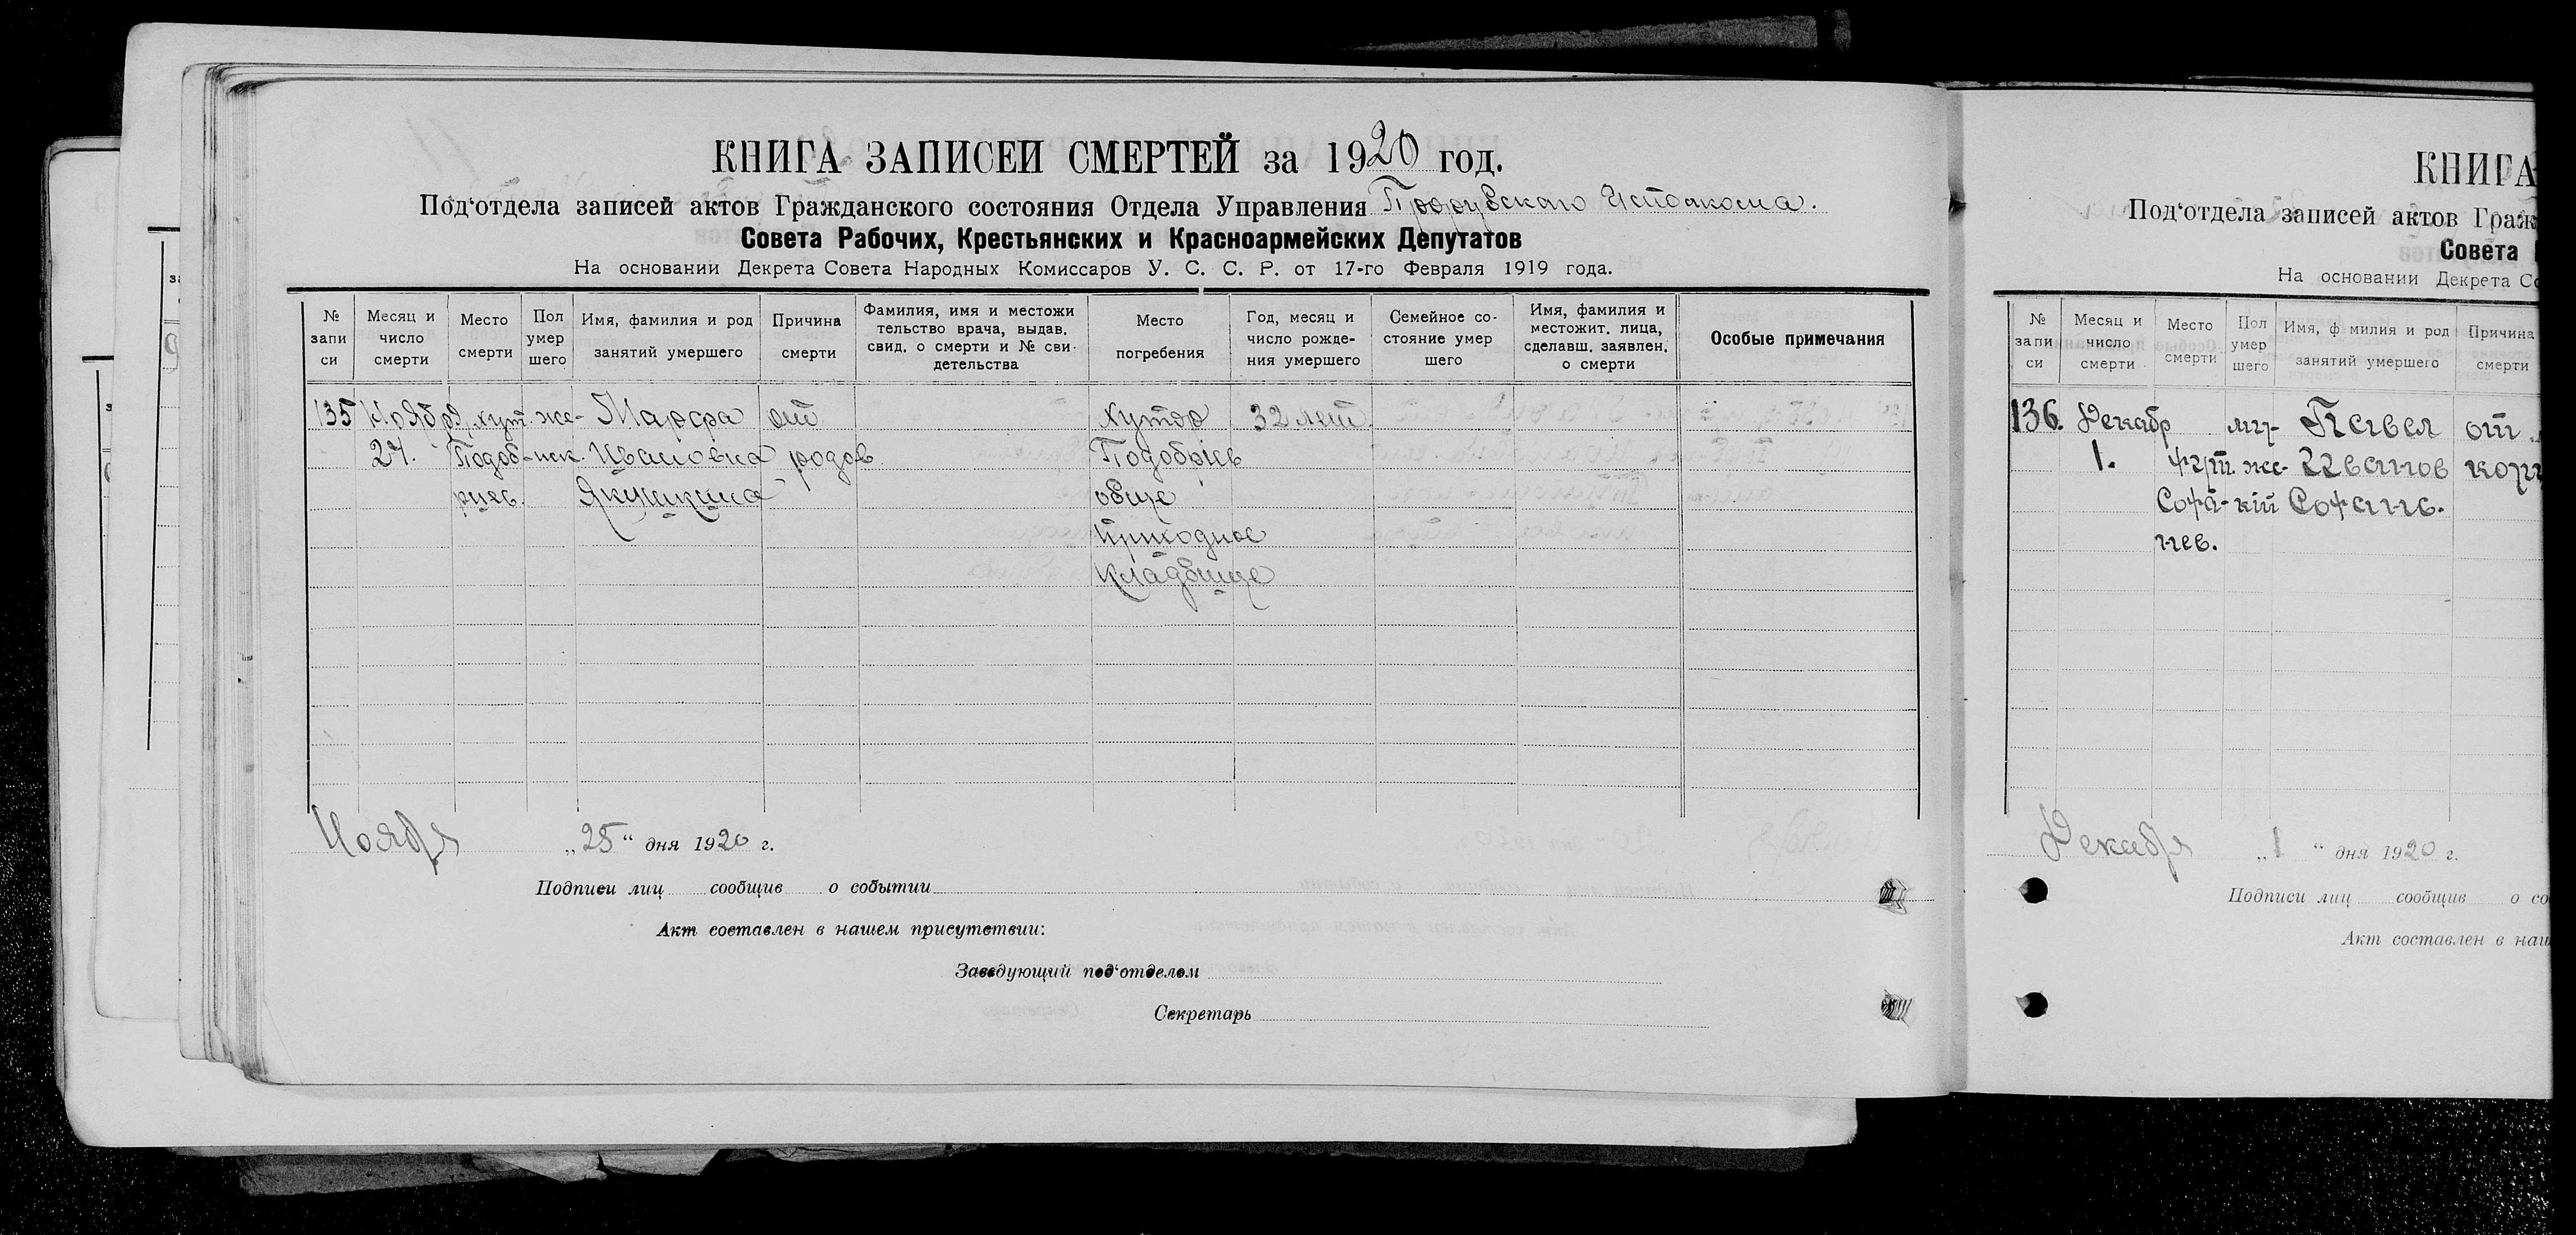 КНИГА ЗАПИСЕЙ СМЕРТЕЙ за 1920 год.
Под‘отдела записей актов Гражданского состояния Отдела Управления
Совета Рабочих, Крестьянских и Красноармейских Депутатов
На основании Декрета Совета Народных Комиссаров У. С. С. Р. от 17-го Февраля 1919 года.
№ запи си
Месяц и число смерти
Место смерти
Пол умер шего
Имя, фамилия и род занятий умершего
Причина смерти
Фамилия, имя и местожи тельство врача, выдав. свид. о смерти и № сви- детельства
Место погребения
Год, месяц и число рожде- ния умершего
Семейное со- стояние умер шего
Имя, фамилия и местожит. лица, сделавш. заявлен. о смерти
Особые примечания
135 Ноября хут. же- Марфа от Хутор 32 лет
27. Подоб- нск. Ивановна родов
Якушкина обще
приходное
кладбище
Ноября „25“ дня 1920 г.
Подписи лиц сообщив о событии
Акт составлен в нашем присутствии:
Заведующий под‘отделом
Секретарь
КНИГА
Под‘отдела записей актов Граж
Совета
На основании Декрета Со
№ запи си
Месяц и число смерти
Место смерти
Пол умер шего
Имя, ф милия и род занятий умершего
Причина смерти
136. Декабр му- Павел от
1. же- Иванов
Софа- кій Софань-
нев.
Декабря „1“ дня 1920 г.
Подписи лиц сообщив о со
Акт составлен в наш